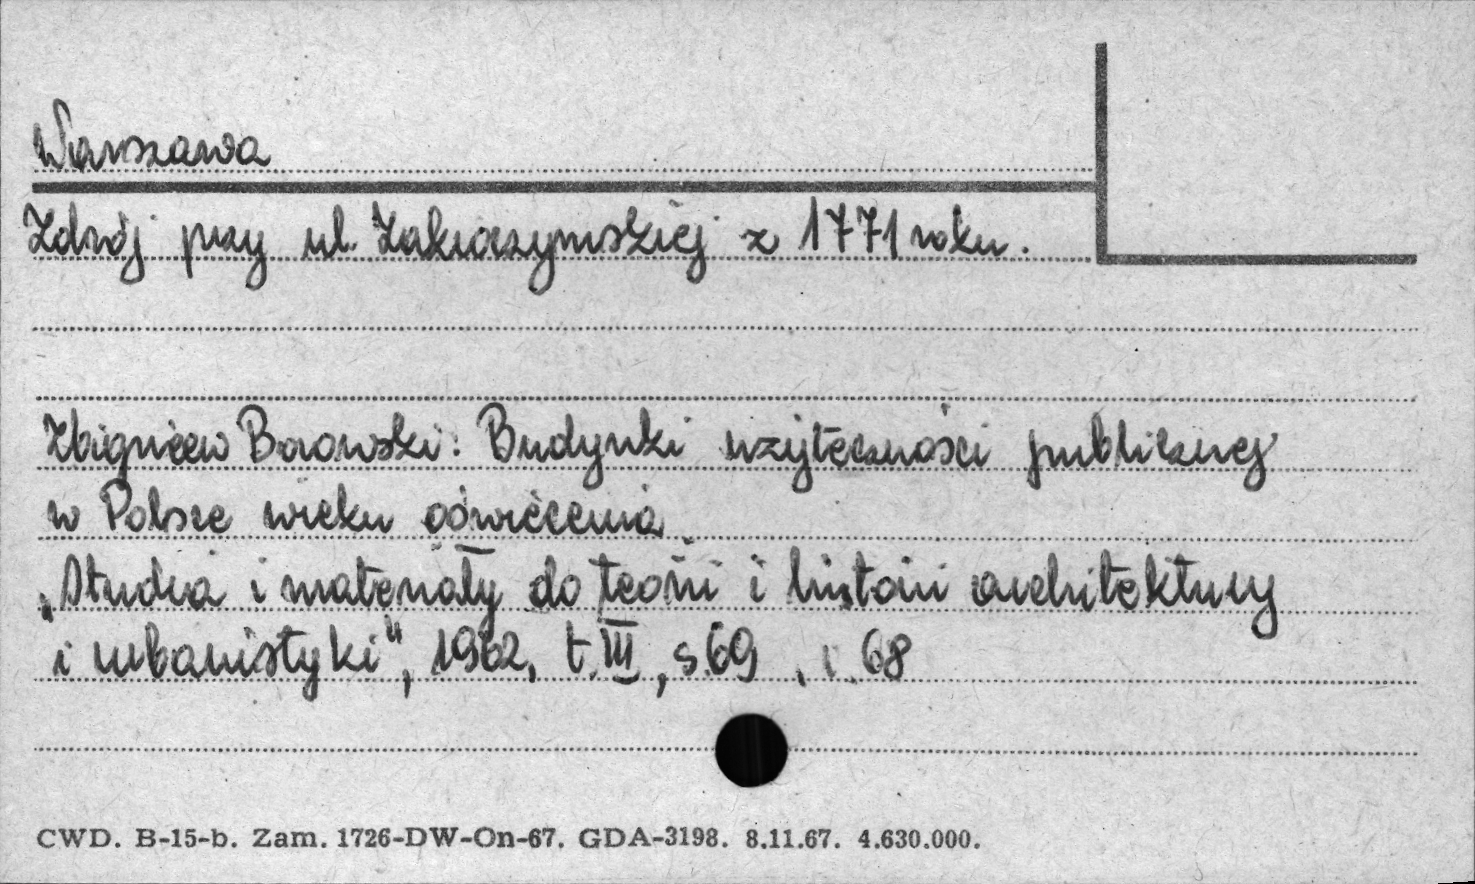 Warszawa
Zdrój przy ul. Zakroczymskiej z 1771 roku.
Zbigniew Borowski: Budynki użyteczności publicznej
w Polsce wieku oświecenia
„Studia i materiały do teorii i historii architektury
i urbanistyki", 1962, t. III, s. 69, i. 68
CWD. B-15-b. Zam. 1726-DW-On-67. GDA-3198. 8.11.67. 4.630.000.